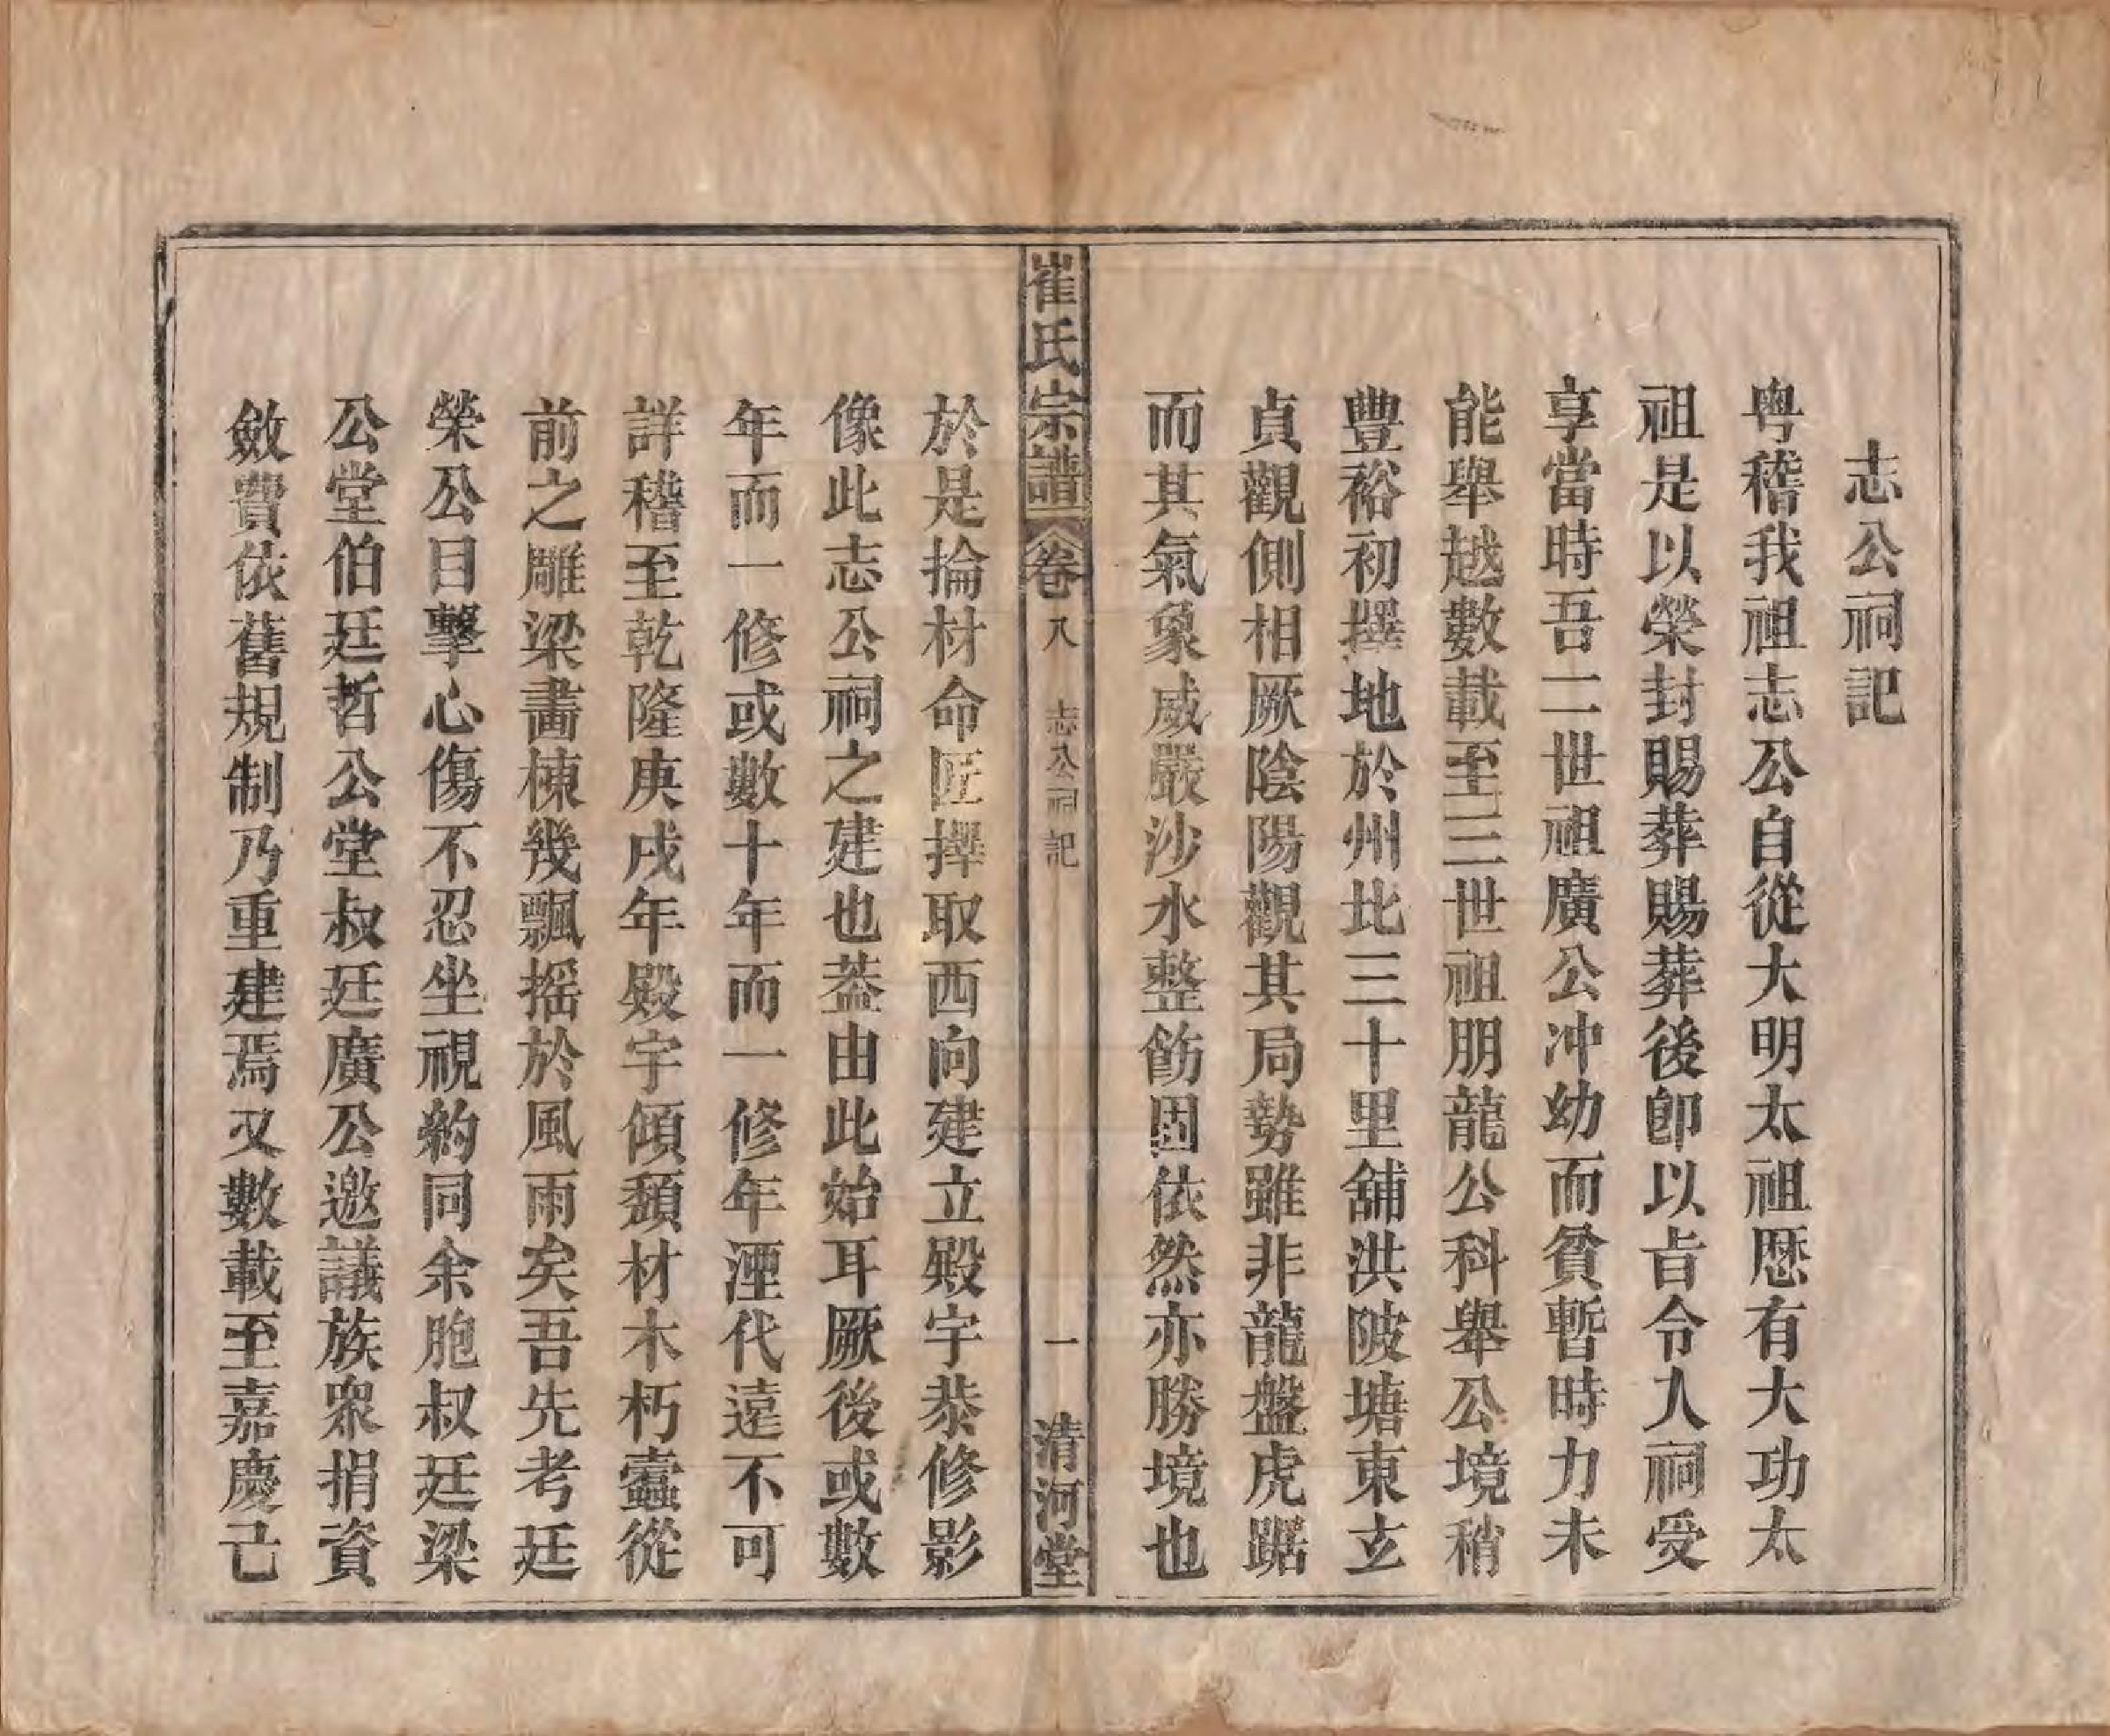 志公祠記
粤稽我祖志公自從大明太祖歷有大功太
祖是以榮封賜葬賜葬後卽以㫖令人祠受
享當時吾二世祖廣公冲幼而貧暫時力未
能舉越數載至三世祖朋龍公科舉公境稍
豐裕初擇地於州比三十里舖洪陂塘東玄
貞觀側相厥陰陽觀其局勢雖非龍盤虎踞
而其氣象威嚴沙水整飭固依然亦勝境也
崔氏宗譜 卷八 志公祠記 一 清河堂
於是掄材命匠擇取西向建立殿宇恭修影
像此志公祠之建也葢由此始耳厥後或數
年而一修或數十年而一修年湮代遠不可
詳稽至乾隆庚戌年殿宇傾頹材木朽蠹從
前之雕梁畵棟幾飄摇於風雨矣吾先考廷
榮公目擊心傷不忍坐視約同余胞叔廷梁
公堂伯廷哲公堂叔廷廣公邀議族衆捐資
斂費依舊規制乃重建焉又數載至嘉慶己